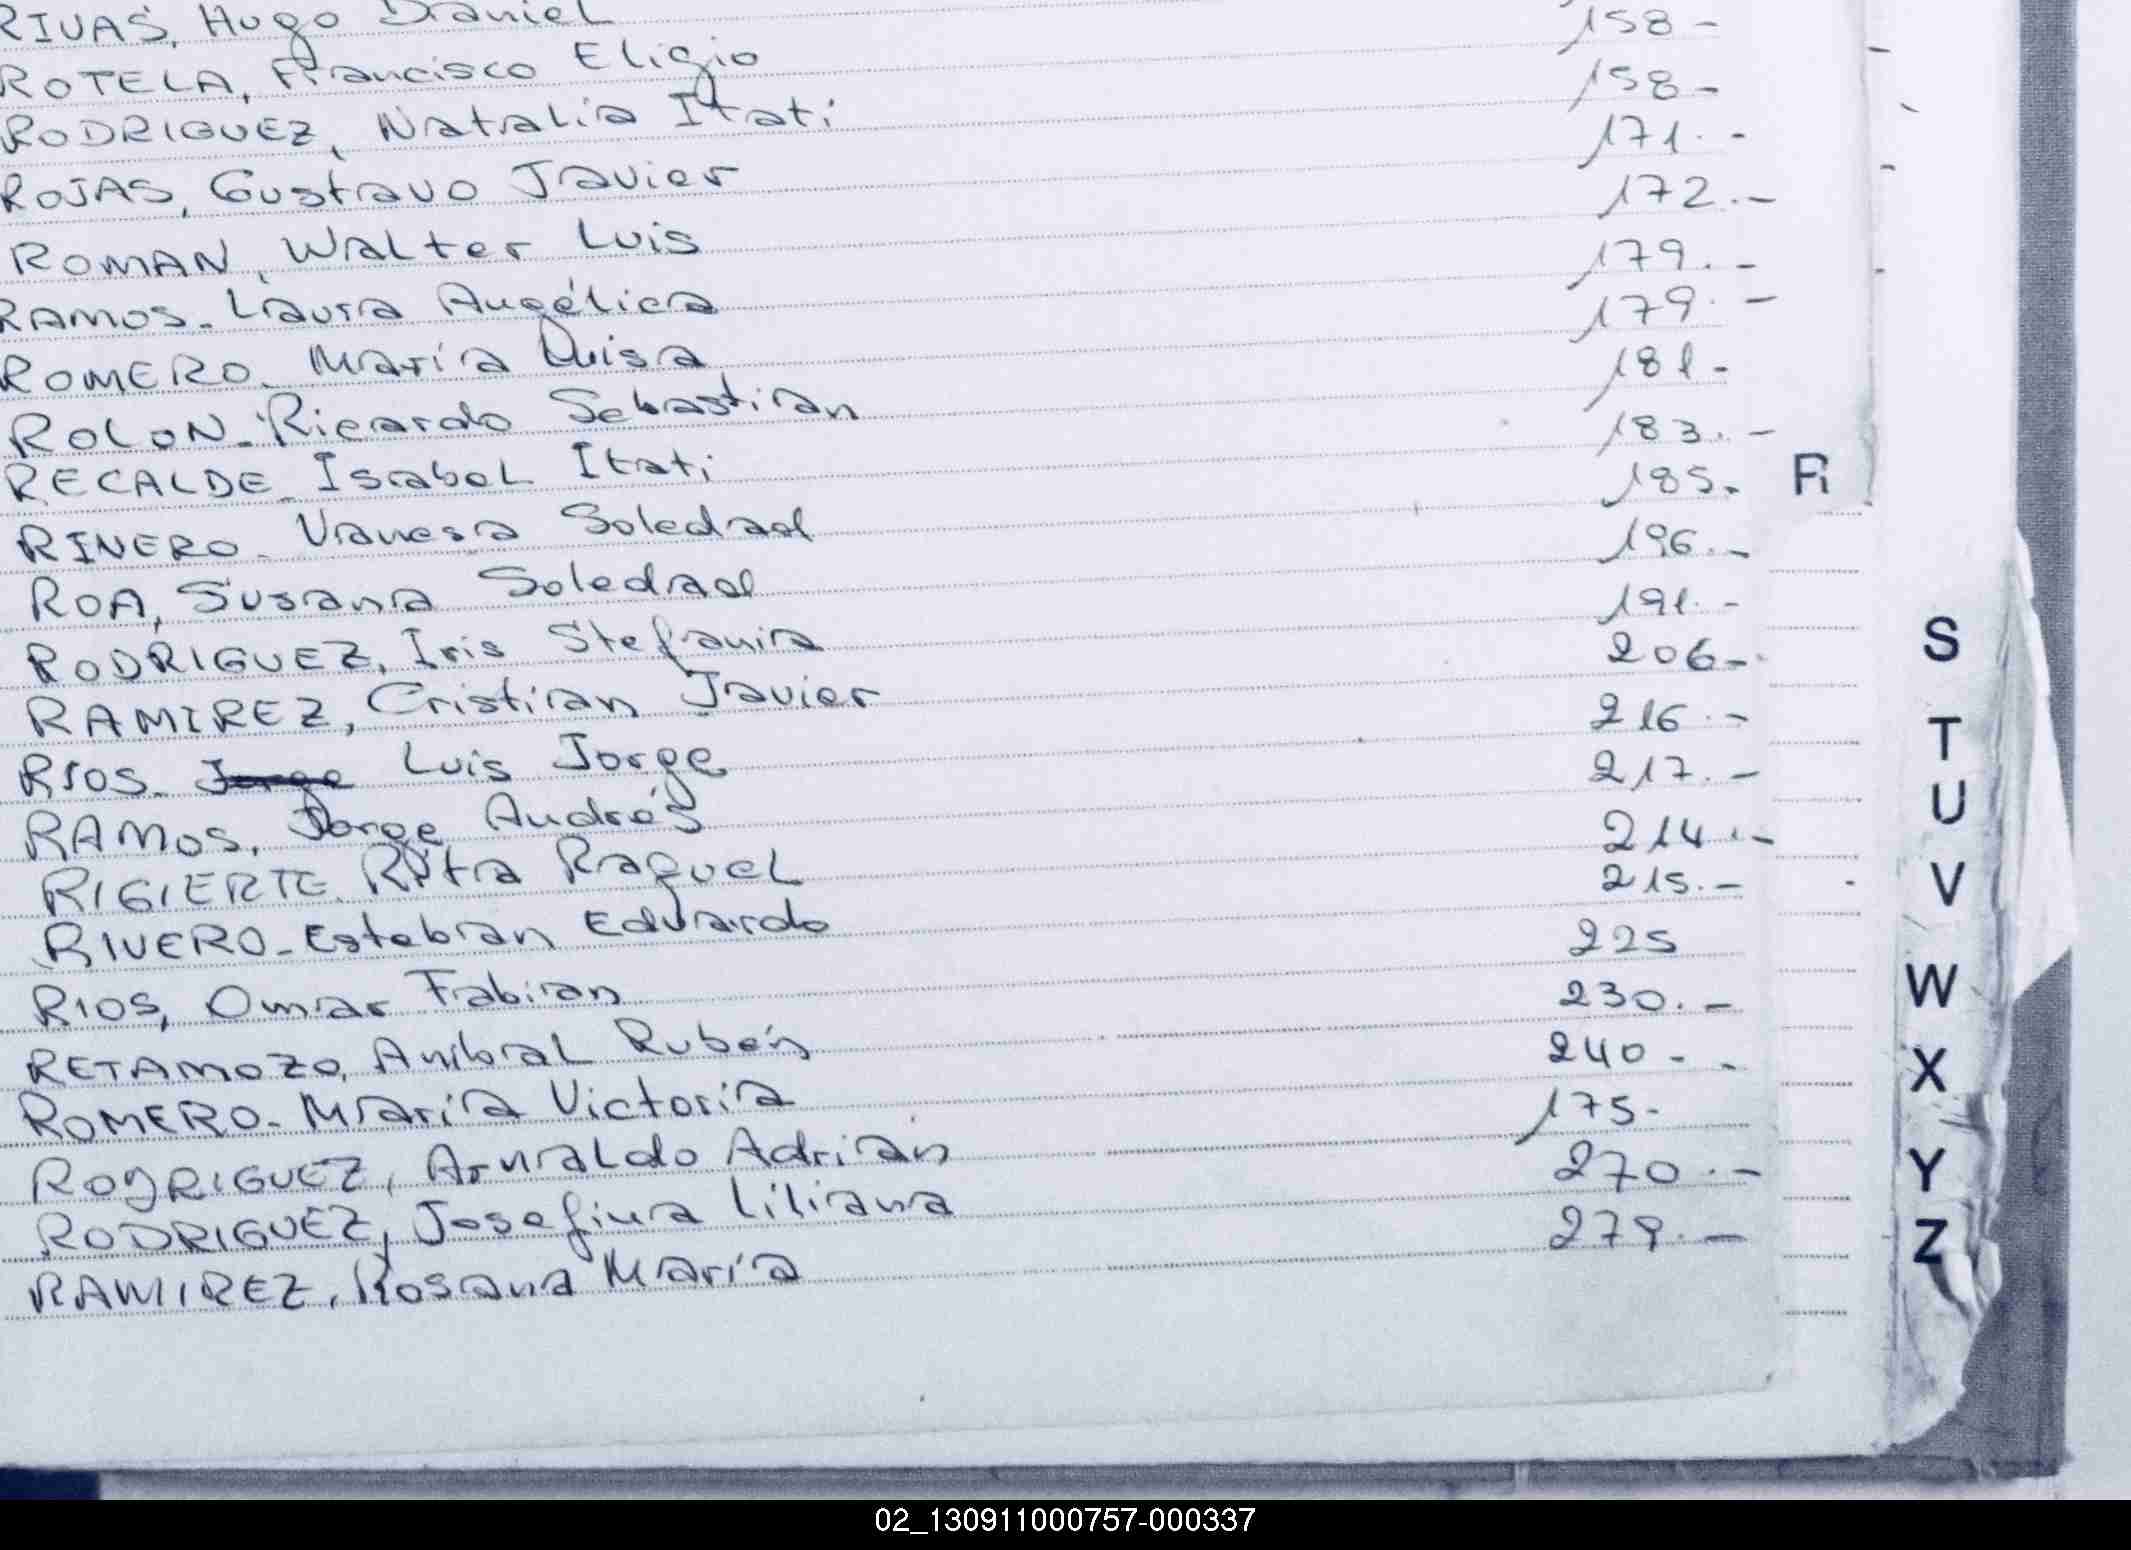 RIVAS, Hugo Daniel
ROTELA, Francisco Eligio 158-
RODRIGUEZ, Natalia Itati 158-
ROJAS, Gustavo Javier 171.-
ROMAN, Walter Luis 172.-
RAMOS- Laura Angélica 179.-
ROMERO- María Luisa 179.-
ROLON- Ricardo Sebastian 181-
RECALDE- Isabel Itati 183.-
RINERO- Vanesa Soledad 185.
ROA, Susana Soledad 196.-
RODRIGUEZ, Iris Stefania 191.-
RAMIREZ, Cristian Javier 206-
RIOS- Jorge Luis Jorge 216.-
RAMOS, Jorge Andrés 217.-
RIGIERTE Rita Raquel 214.-
RIVERO- Esteban Eduardo 215.-
RIOS, Omar Fabian 225
RETAMOZO, Anibal Rubén 230.-
ROMERO- María Victoria 240-
RODRIGUEZ, Arnaldo Adrian 175-
RODRIGUEZ, Josefina Liliana 270.-
RAMIREZ, Rosana María 279.-
R
S
T
U
V
W
X
Y
Z
02_130911000757-000337